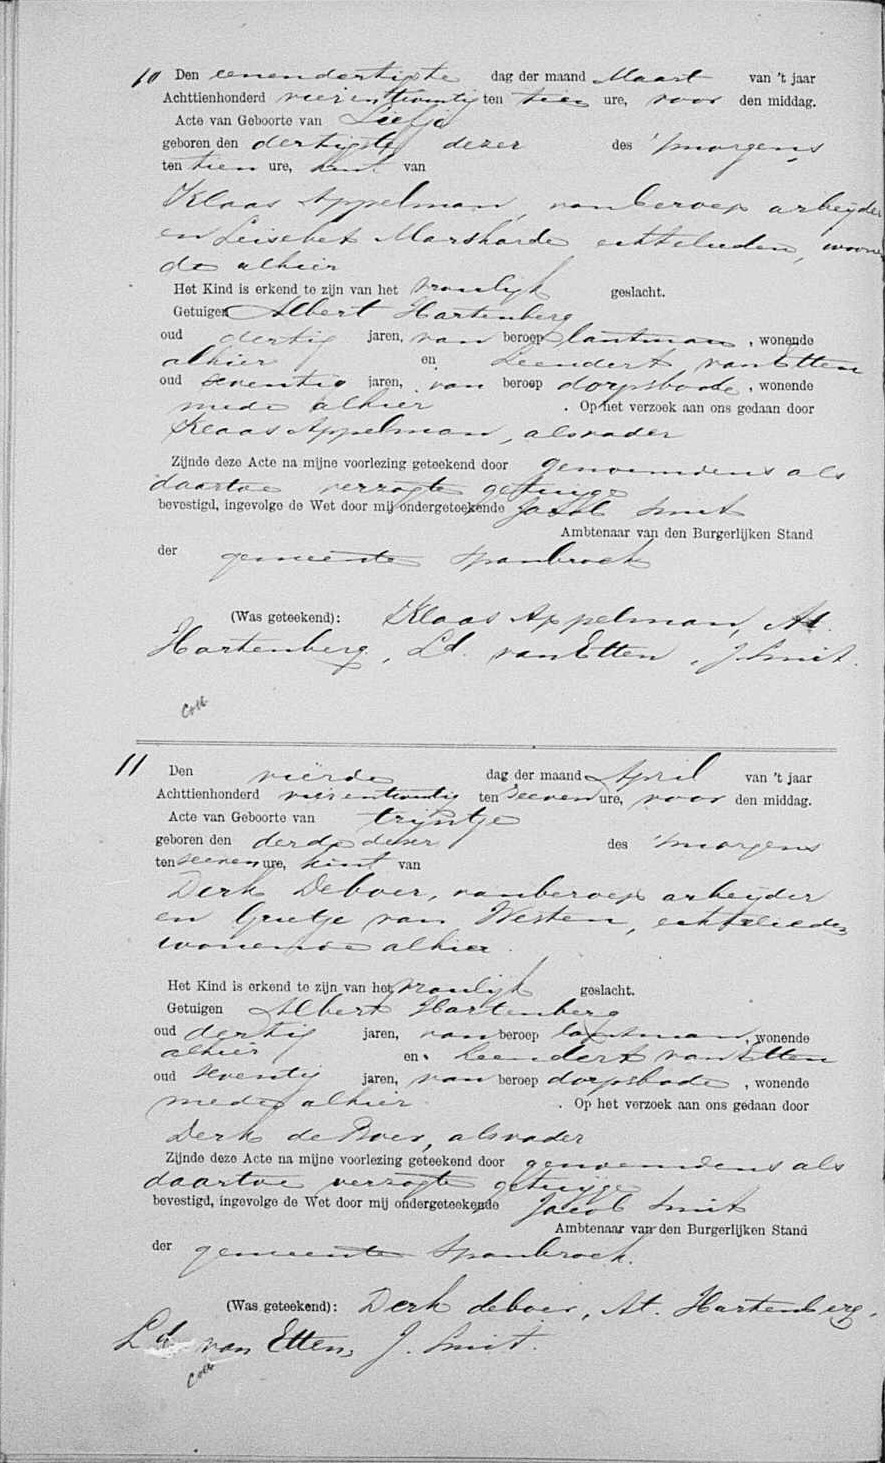 10 Den eenendertigste dag der maand Maart van 't jaar
Achttienhonderd vierentwentig ten tien ure, voor den middag.
Acte van Geboorte van
geboren den dertigste dezer des 'smorgens
ten tien ure, kint van
Klaas Appelman, vanberoep arbeijder
en Leisebet echtelieden, woonen
de alhier
Het Kind is erkend te zijn van het vroulijk geslacht.
Getuigen Albert Hartenberg
oud dertig jaren, van beroep lantman, wonende
alhier en Leendert vanEtten
oud seventig jaren, van beroep dorpsbode, wonende
mede alhier. Op het verzoek aan ons gedaan door
Klaas Appelman, alsvader
Zijnde deze Acte na mijne voorlezing geteekend door genoemdens als
daartoe verzogte getuige
bevestigd, ingevolge de Wet door mij ondergeteekende Jacob Smit
Ambtenaar van den Burgerlijken Stand
der gemeente Spanbroek
(Was geteekend): Klaas Appelman, At.
Hartenberg, Ld. vanEtten, J. Smit.
Coll
11 Den vierde dag der maand April van 't jaar
Achttienhonderd vierentwentig ten seeven ure, voor den middag.
Acte van Geboorte van trijntje
geboren den derde dezer des 'smorgens
ten seeven ure, kint van
Derk Deboer, vanberoep arbeijder
en Grietje van Westen, echtelieden
wonende alhier.
Het Kind is erkend te zijn van het vroulijk geslacht.
Getuigen Albert Hartenberg
oud dertig jaren, van beroep lantman, wonende
alhier en Leendert vanEtten
oud seventig jaren, van beroep dorpsbode, wonende
mede alhier. Op het verzoek aan ons gedaan door
Derk de Boer, alsvader
Zijnde deze Acte na mijne voorlezing geteekend door genoemdens als
daartoe verzogte getuijge
bevestigd, ingevolge de Wet door mij ondergeteekende Jacob Smit
Ambtenaar van den Burgerlijken Stand
der gemeente Spanbroek.
(Was geteekend): Derk deboer, At. Hartenberg,
Ld van Etten, J. Smit.
Coll